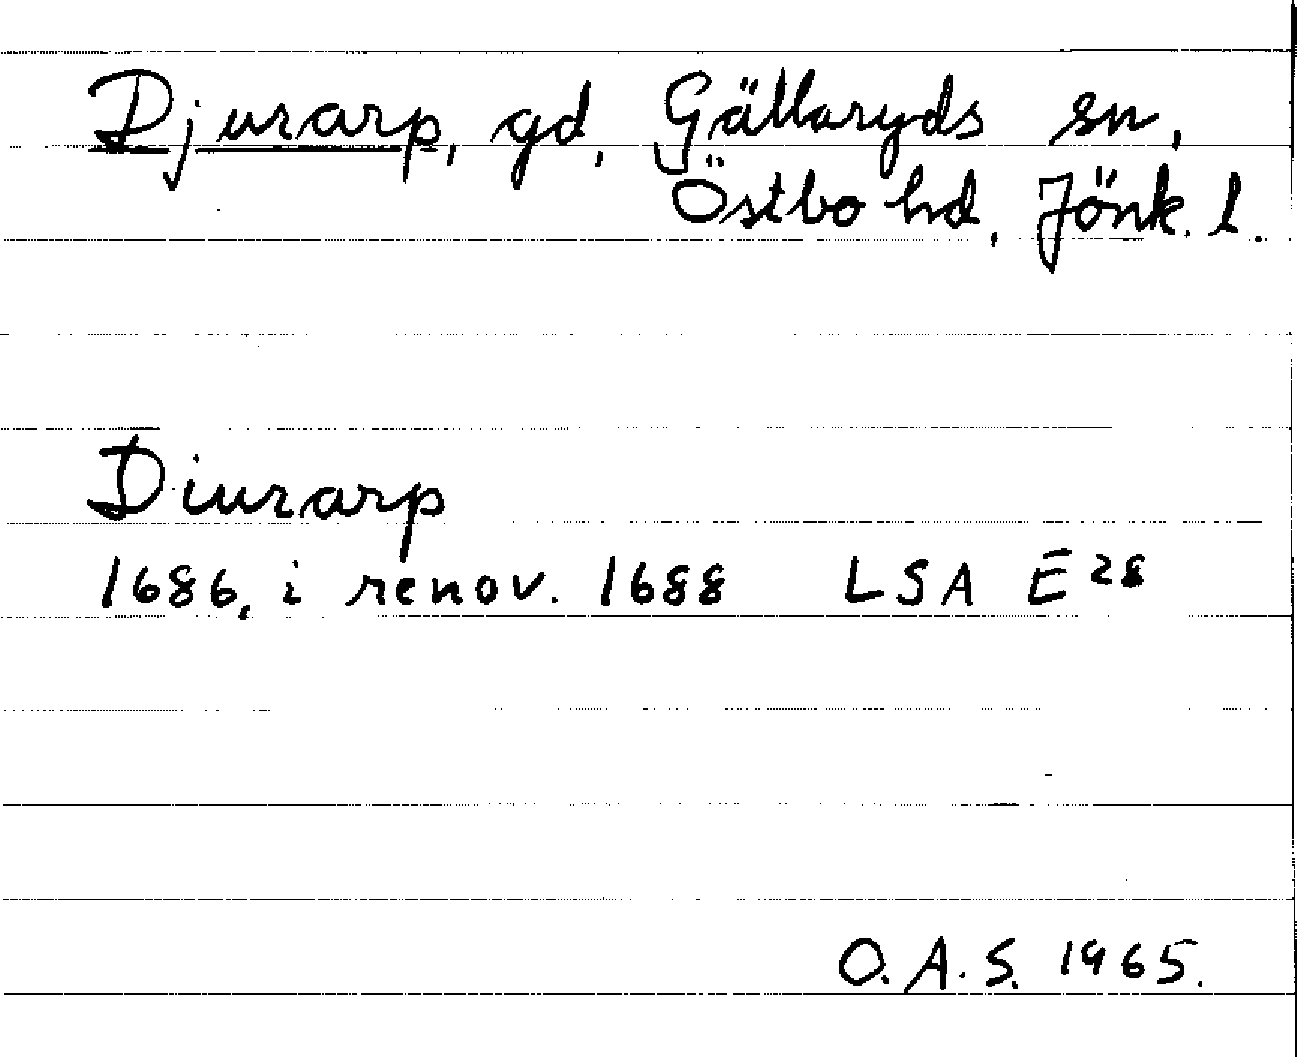 Djurarp, gd, Gällaryds sn,
Östbo hd, Jönk. l.
Diurarp
1686, i renov. 1688 LSA E 28
O.A.S. 1965.